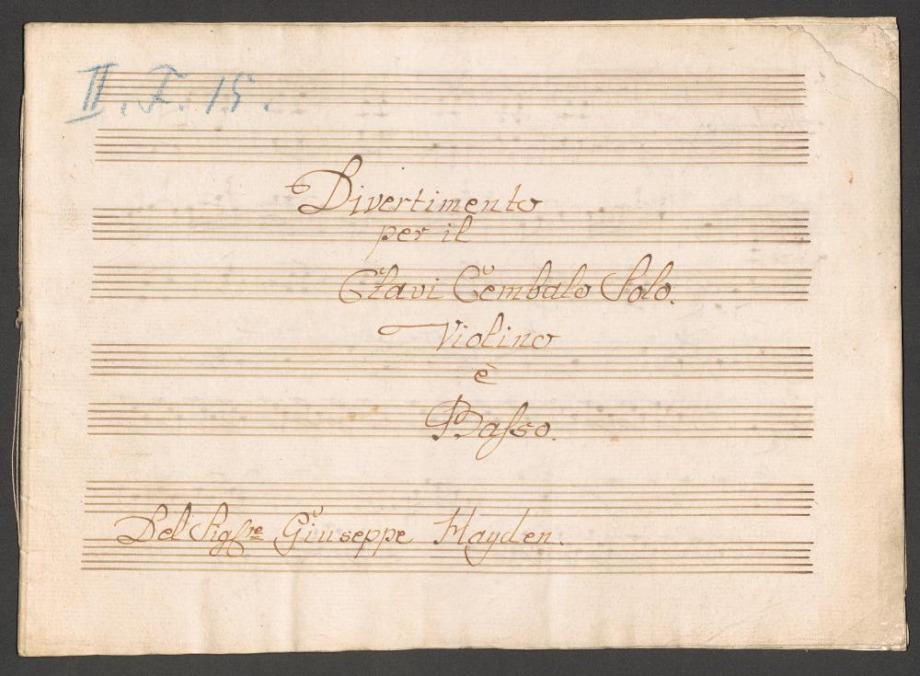 II. F. 15.
Divertimento
per il
Clavi Cembalo Solo.
Violino
è
Baſso.
Del Sigre Giuseppe Hayden.